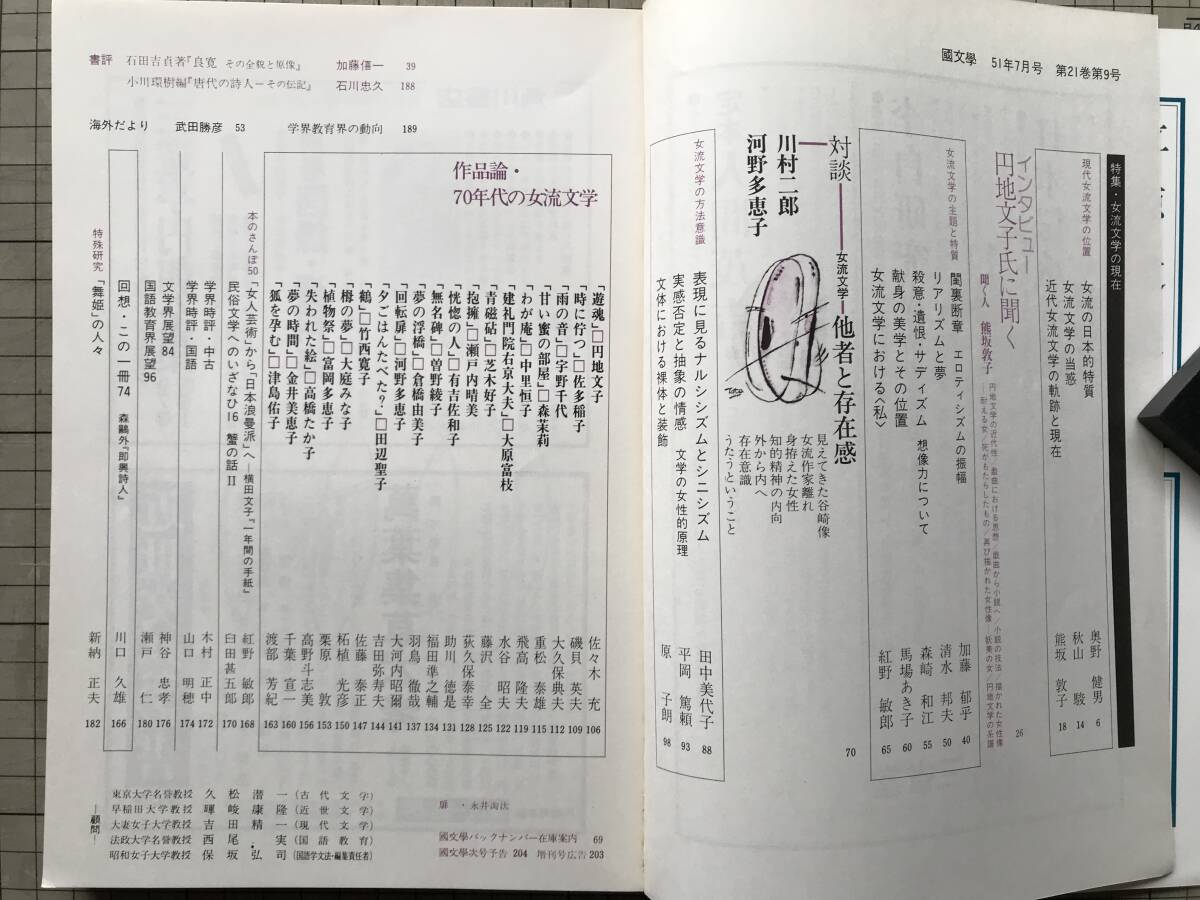 國文學 51年7月号 第21巻第9号
特集・女流文学の現在
現代女流文学の位置
女流の日本的特質 奥野 健男 6
女流文学の当惑 秋山 駿 14
近代女流文学の軌跡と現在 熊坂 敦子 18
インタビュー
円地文子氏に聞く
聞く人 熊坂敦子
円地文学の近代性/戯曲における思想/戯曲から小説へ/小説の技法/描かれた女性像
―耐える女/死がもたらしたもの/再び描かれた女性像―妖美の女/円地文学の系譜
26
女流文学の主題と特質
閨裏断章 エロティシズムの振幅 加藤 郁乎 40
リアリズムと夢 清水 邦夫 50
殺意・遺恨・サディズム 想像力について 森崎 和江 55
献身の美学とその位置 馬場あき子 60
女流文学における〈私〉 紅野 敏郎 65
対談――女流文学―他者と存在感 70
川村二郎
河野多恵子
見えてきた谷崎像
女流作家離れ
身拵えた女性
知的精神の内向
外から内へ
存在意識
うたうということ
女流文学の方法意識
表現に見るナルシシズムとシニシズム 田中美代子 88
実感否定と抽象の情感 文学の女性的原理 平岡 篤頼 93
文体における裸体と装飾 原 子朗 98
書評 石田吉貞著『良寛 その全貌と原像』 加藤僖一 39
小川環樹編『唐代の詩人―その伝記』 石川忠久 188
海外だより 武田勝彦 53 学界教育界の動向 189
作品論・
70年代の女流文学
「遊魂」□円地文子 佐々木 充 106
「時に佇つ」□佐多稲子 磯貝 英夫 109
「雨の音」□宇野千代 大久保典夫 112
「甘い蜜の部屋」□森茉莉 重松 泰雄 115
「わが庵」□中里恒子 飛高 隆夫 119
「建礼門院右京大夫」□大原富枝 水谷 昭夫 122
「青磁砧」□芝木好子 藤沢 全 125
「抱擁」□瀬戸内晴美 荻久保泰幸 128
「恍惚の人」□有吉佐和子 助川 徳是 131
「無名碑」□曽野綾子 福田準之輔 134
「夢の浮橋」□倉橋由美子 羽鳥 徹哉 137
「回転扉」□河野多恵子 大河内昭爾 141
「夕ごはんたべた?」□田辺聖子 吉田弥寿夫 144
「鶴」□竹西寛子 佐藤 泰正 147
「栂の夢」□大庭みな子 柘植 光彦 150
「植物祭」□富岡多恵子 栗原 敦 153
「失われた絵」□高橋たか子 高野斗志美 156
「夢の時間」□金井美恵子 千葉 宣一 160
「狐を孕む」□津島佑子 渡部 芳紀 163
本のさんぽ50 「女人芸術」から「日本浪曼派」へ―横田文子『一年間の手紙』 紅野 敏郎 168
民俗文学へのいざなひ16 蟹の話II 臼田甚五郎 170
学界時評・中古 木村 正中 172
学界時評・国語 山口 明穂 174
文学界展望84 神谷 忠孝 176
国語教育界展望96 瀬戸 仁 180
回想・この一冊74 森鷗外『即興詩人』 川口 久雄 166
特殊研究 「舞姫」の人々 新納 正夫 182
扉・永井海汰
國文學バックナンバー在庫案内 69
國文學次号予告 204 増刊号広告 203
東京大学名誉教授 久松潜一(古代文学)
早稲田大学教授 暉峻康隆(近世文学)
大妻女子大学教授 吉田精一(現代文学)
法政大学名誉教授 西尾実(国語教育)
昭和女子大学教授 保坂弘司(国語学文法・編集責任者)
―顧問―